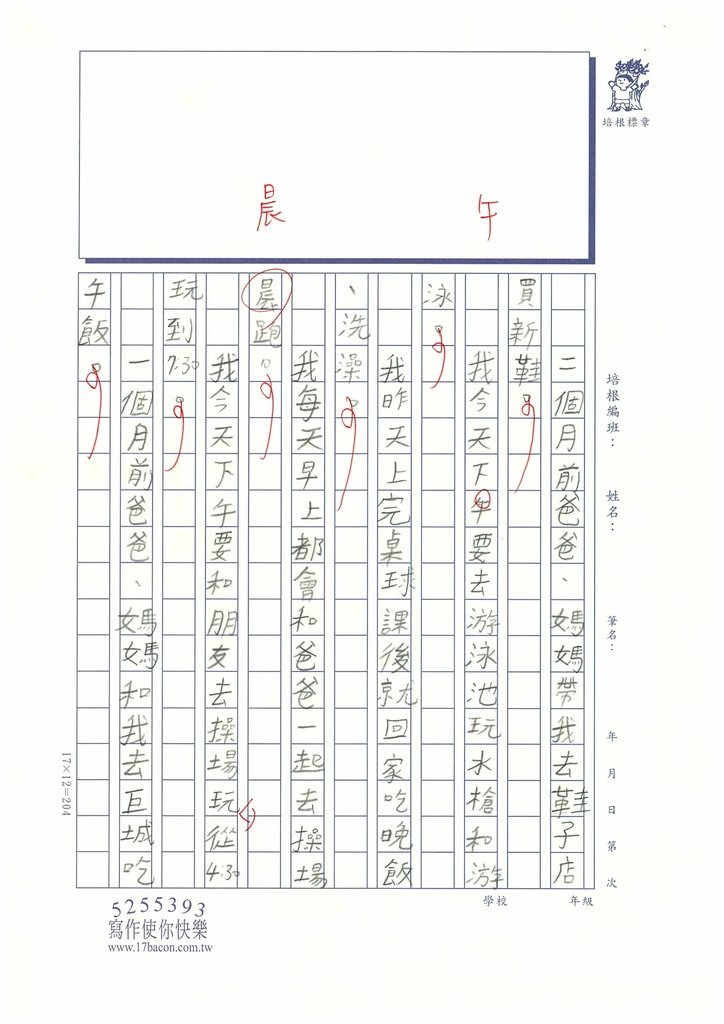 晨
午
培根標章
培根編班：
姓名：
筆名：
年 月 日 第 次
學校
年級
二個月前爸爸、媽媽帶我去鞋子店
買新鞋。
我今天下午要去游泳池玩水槍和游
泳。
我昨天上完桌球課後就回家吃晚飯
、洗澡。
我每天早上都會和爸爸一起去操場
晨跑。
我今天下午要和朋友去操場玩從4:30
玩到7:30。
一個月前爸爸、媽媽和我去巨城吃
午飯。
17×12=204
5255393
寫作使你快樂
www.17bacon.com.tw